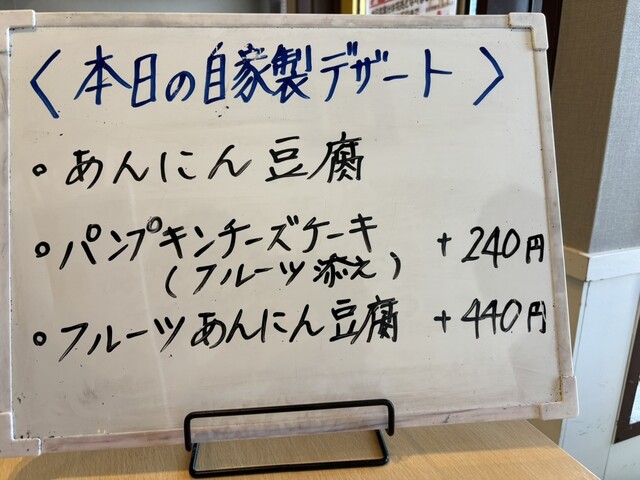 〈本日の自家製デザート〉
・あんにん豆腐
・パンプキンチーズケーキ +240円
(フルーツ添え)
・フルーツあんにん豆腐 +440円